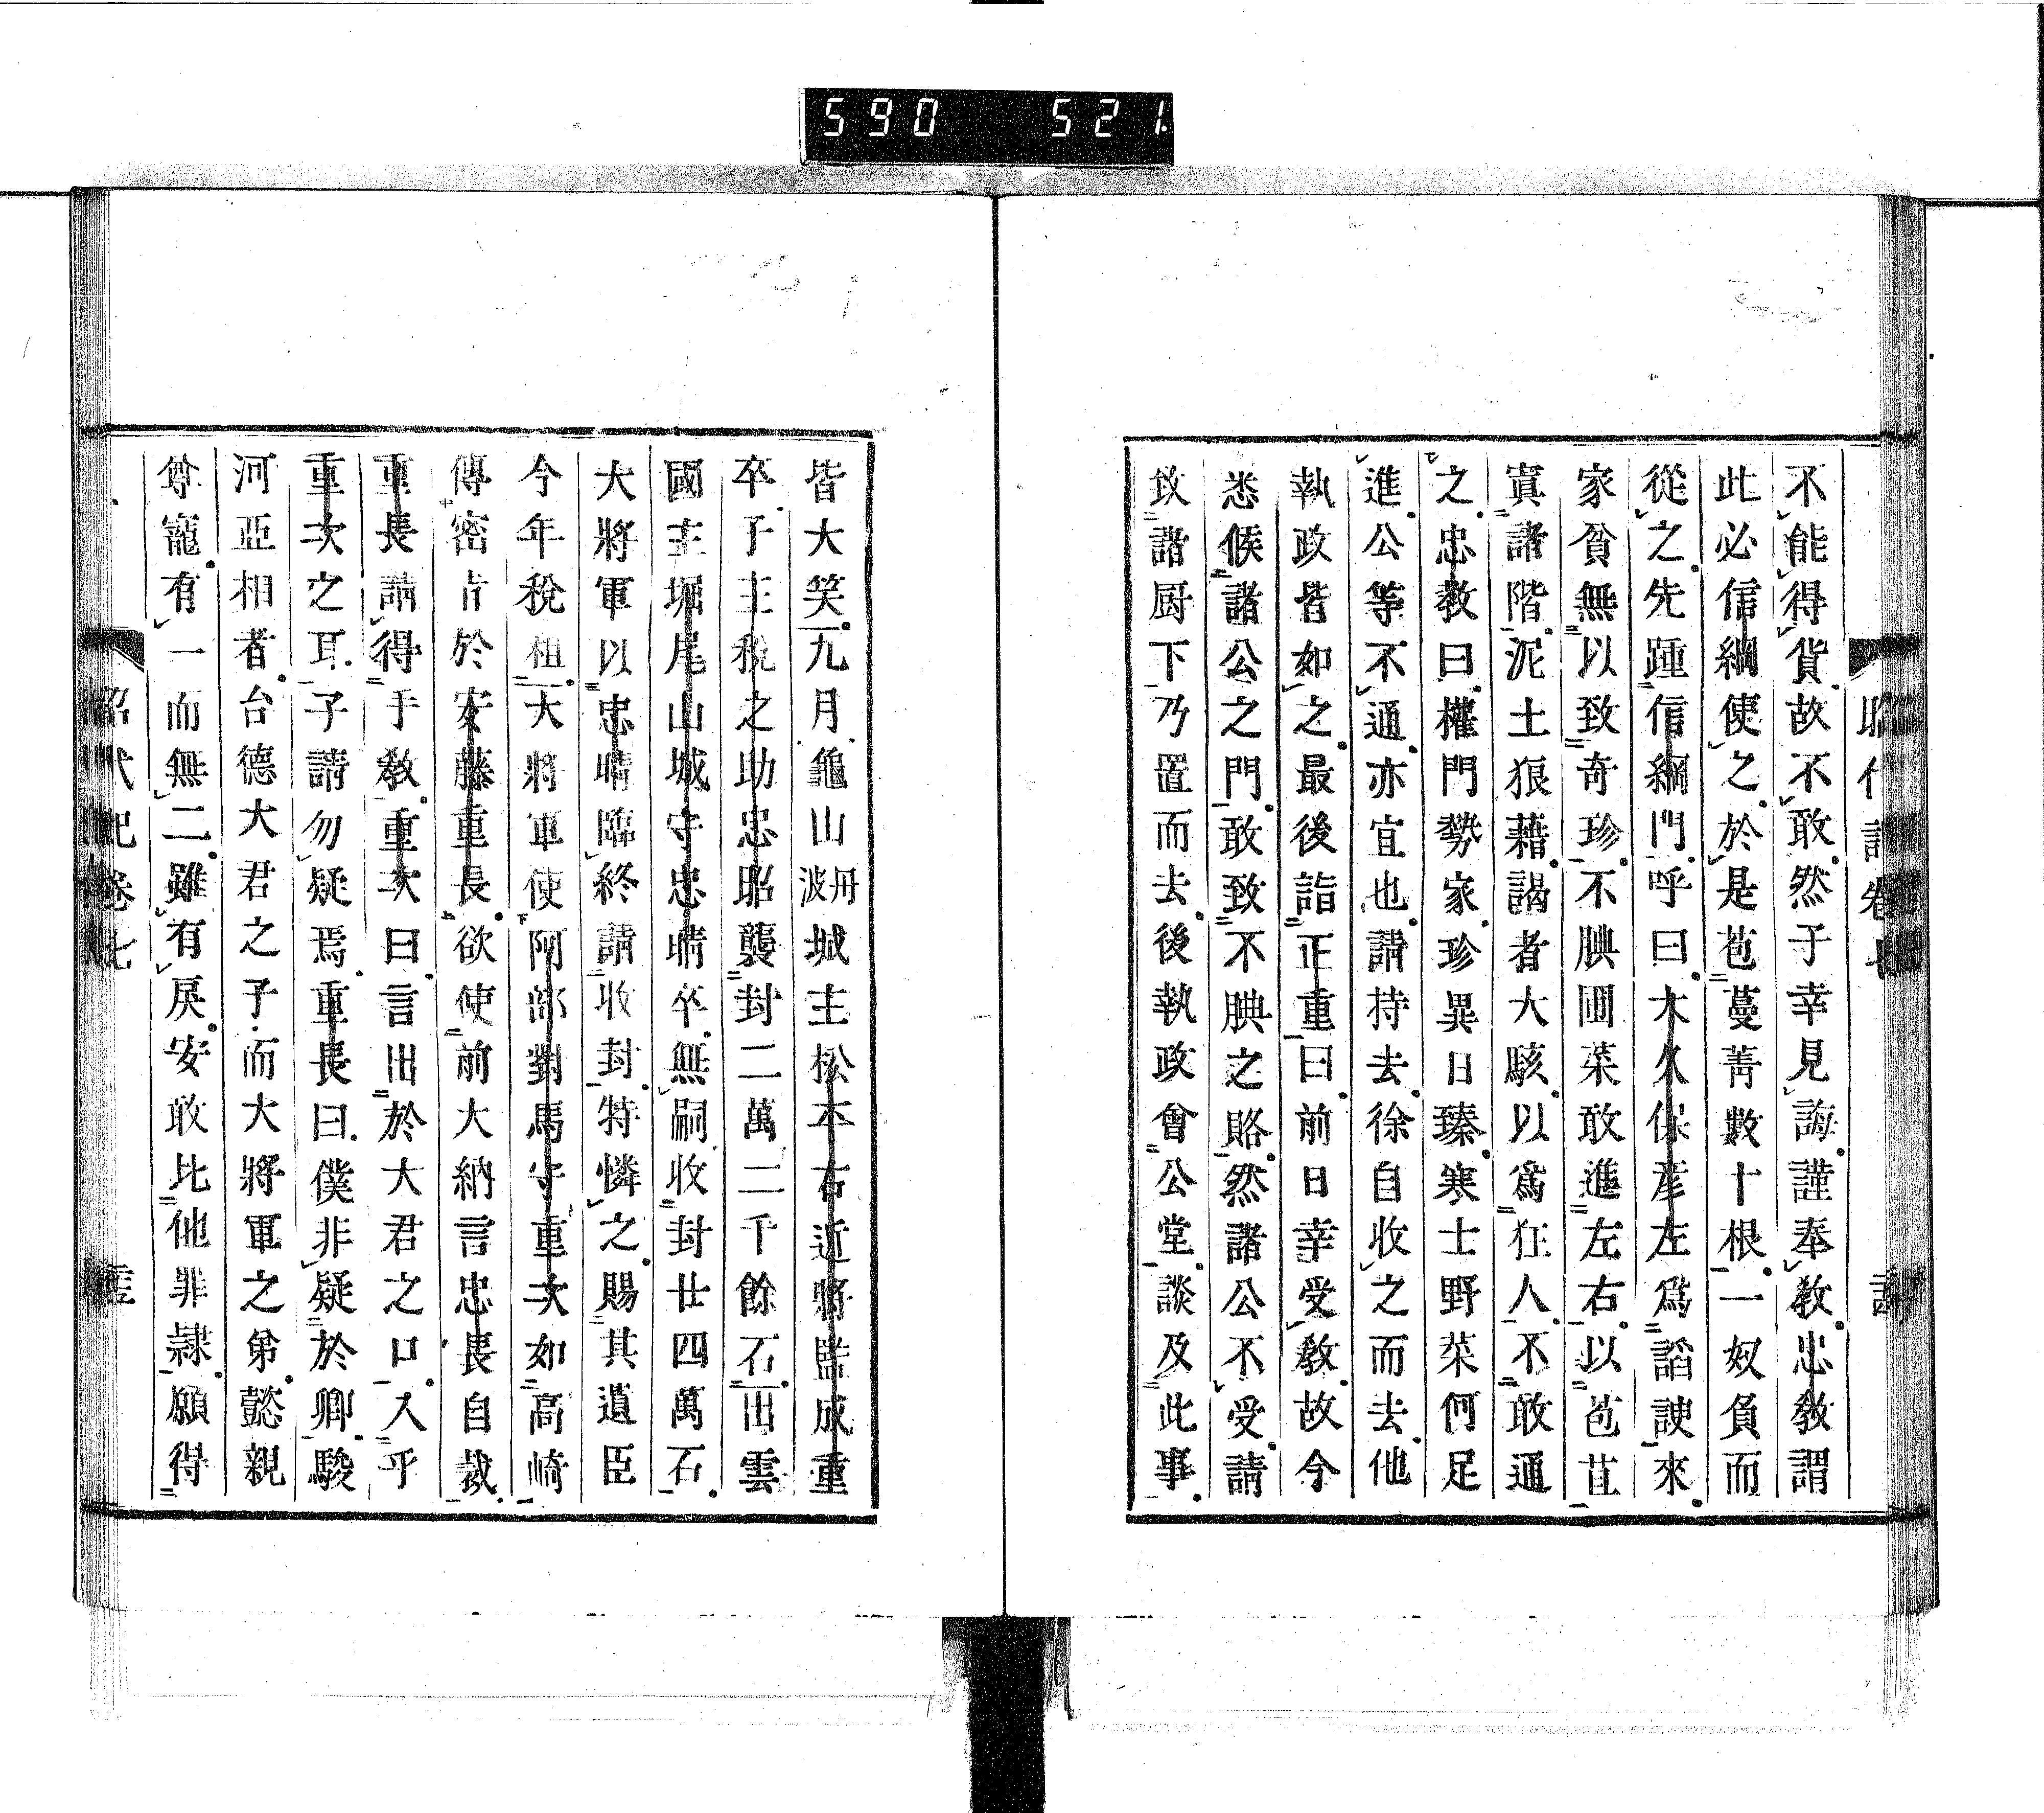 590 521
不能得貨故不敢然子幸見誨謹奉教忠教謂
此必信綱使之於是苞蔓菁數十根一奴負而
從之先踵信綱門呼曰大久保彦左爲謟諛來
家貧無以致奇珍不腆圃菜敢進左右以苞苴
寘諸階泥土狼藉謁者大駭以爲狂人不敢通
之忠教曰權門勢家珍異日臻寒士野菜何足
進公等不通亦宜也請持去徐自收之而去他
執政皆如之最後詣正重曰前日幸受教故今
悉候諸公之門敢致不腆之賂然諸公不受請
致諸厨下乃置而去後執政會公堂談及此事
皆大笑九月龜山丹波城主松平右近將監成重
卒子主稅之助忠昭襲封二萬二千餘石出雲
國主堀尾山城守忠晴卒無嗣收封廿四萬石
大將軍以忠晴臨終請收封特憐之賜其遺臣
今年稅租大將軍使阿部對馬守重次如高崎
傳密旨於安藤重長欲使前大納言忠長自裁
重長請得手教重次曰言出於大君之口入乎
重次之耳子請勿疑焉重長曰僕非疑於卿駿
河亞相者台德大君之子而大將軍之弟懿親
尊寵有一而無二雖有戾安敢比他罪隷願得
昭代記卷七